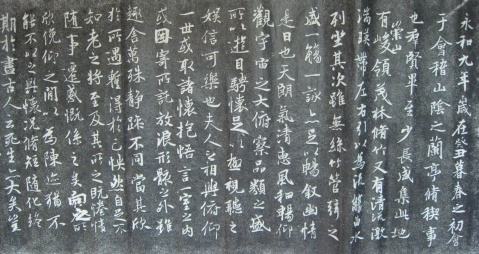 永和九年歲在癸丑暮春之初會
于會稽山陰之蘭亭脩稧事
也群賢畢至少長咸集此地
有崇山峻領茂林脩竹又有清流激
湍暎帶左右引以為流觴曲水
列坐其次雖無絲竹管弦之
盛一觴一詠亦足以暢敘幽情
是日也天朗氣清惠風和暢仰
觀宇宙之大俯察品類之盛
所以遊目騁懷足以極視聽之
娛信可樂也夫人之相與俯仰
一世或取諸懷抱悟言一室之內
或因寄所託放浪形骸之外雖
趣舍萬殊靜躁不同當其欣
於所遇蹔得於己怏然自足不
知老之將至及其所之既惓情
隨事遷感慨係之矣向之所
欣俛仰之間以為陳迹猶不
能不以之興懷況脩短隨化終
期於盡古人云死生亦大矣豈